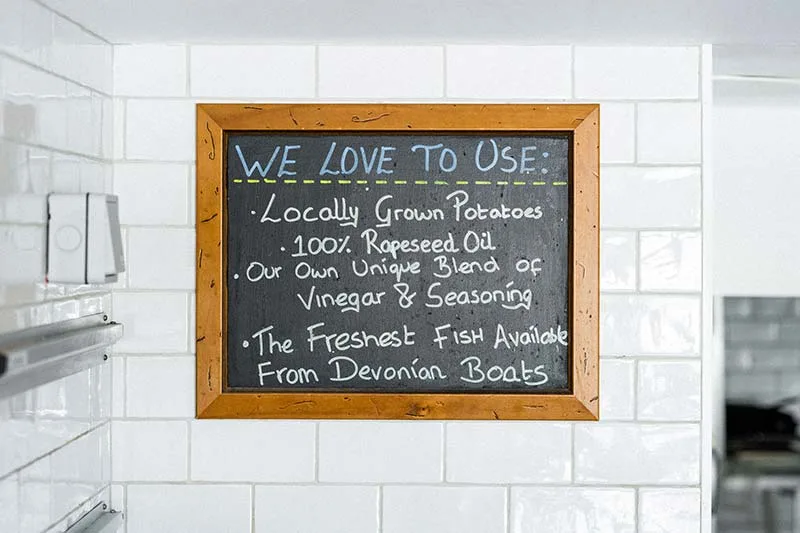 We Love To Use:
· Locally Grown Potatoes
· 100% Rapeseed Oil
· Our Own Unique Blend of
Vinegar & Seasoning
· The Freshest Fish Available
From Devonian Boats